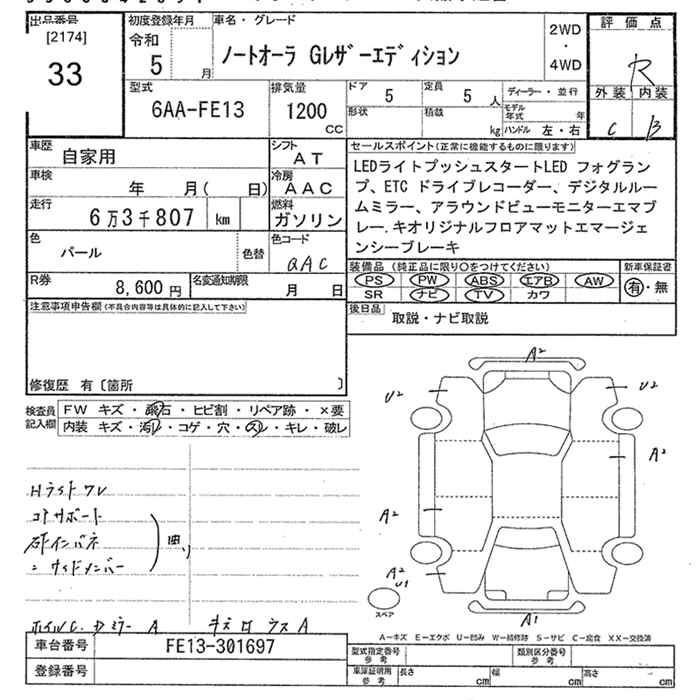 出品番号
[2174]
33
初度登録年月
令和
5 月
車名・グレード
ノートオーラ Gレザーエディション
2WD
・
4WD
評価点
R
外装 内装
C B
型式
6AA-FE13
排気量
1200
CC
ドア
5
定員
5 人
形状
積載
kg
ディーラー・並行
モデル年式 年
ハンドル 左・右
車歴
自家用
シフト
AT
車検
年 月( 日)
冷房
AAC
走行
6万3千807 km
燃料
ガソリン
色
パール
色替
色コード
QAC
R券
8,600 円
名変通知期限
月 日
セールスポイント(正常に機能するものに限ります)
LEDライトプッシュスタートLED フォグラン
プ、ETC ドライブレコーダー、デジタルルー
ムミラー、アラウンドビューモニターエマブ
レー.キオリジナルフロアマットエマージェ
ンシーブレーキ
装備品 (純正品に限り○をつけてください)
PS PW ABS エアB AW
SR ナビ TV カワ
新車保証書
有・無
後日品
取説・ナビ取説
注意事項申告欄(不具合内容等は具体的に記入して下さい)
修復歴 有〔箇所 〕
検査員
記入欄
FW キズ・飛石・ヒビ割・リペア跡・×要
内装 キズ・汚レ・コゲ・穴・スレ・キレ・破レ
Hライトワレ
コアサポート
インパネ
サイドメンバー
曲り
ホイルC. ミラー A
A2
U2
U2
A2
A2
A2
U1
A1
スペア
A-キズ E-エクボ U-凹み W-補修跡 S-サビ C-腐食 XX-交換済
車台番号
FE13-301697
登録番号
型式指定番号
参考
類別区分番号
参考
車庫証明用
参考
長さ cm
幅 cm
高さ cm